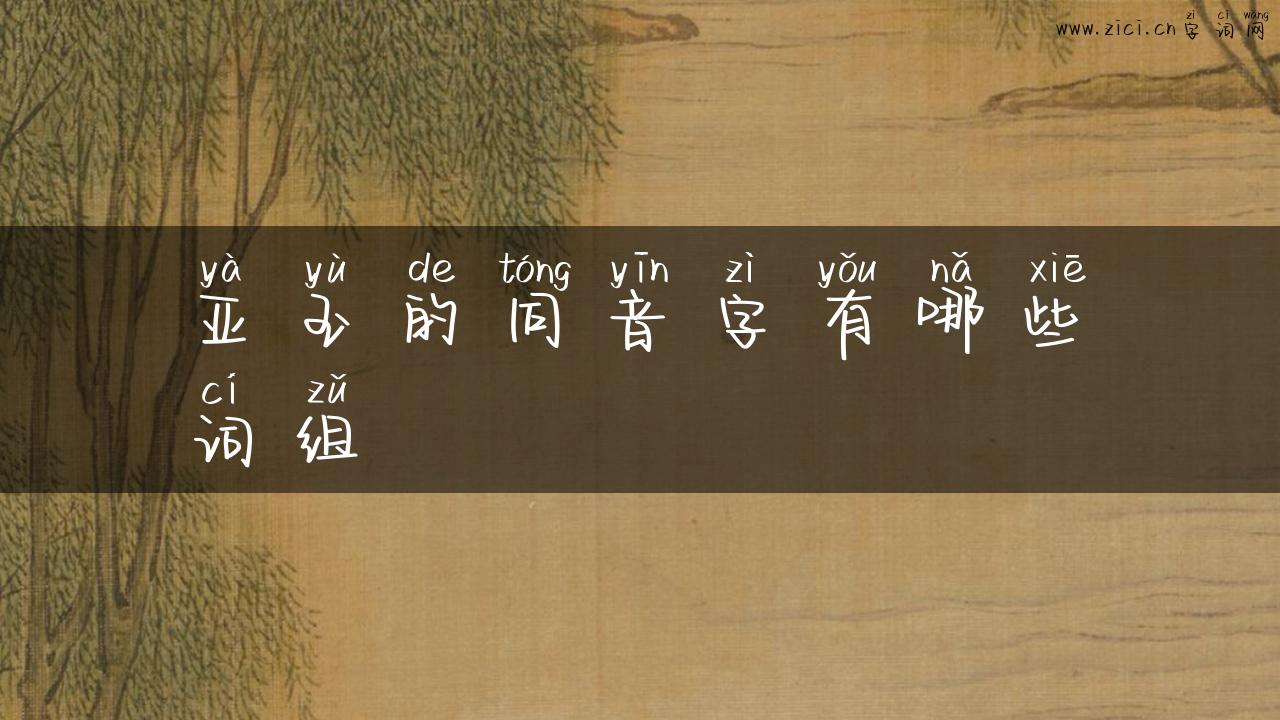 zì cí wǎng
www.zici.cn 字词网
yà yù de tóng yīn zì yǒu nǎ xiē
亚玉的同音字有哪些
cí zǔ
词组